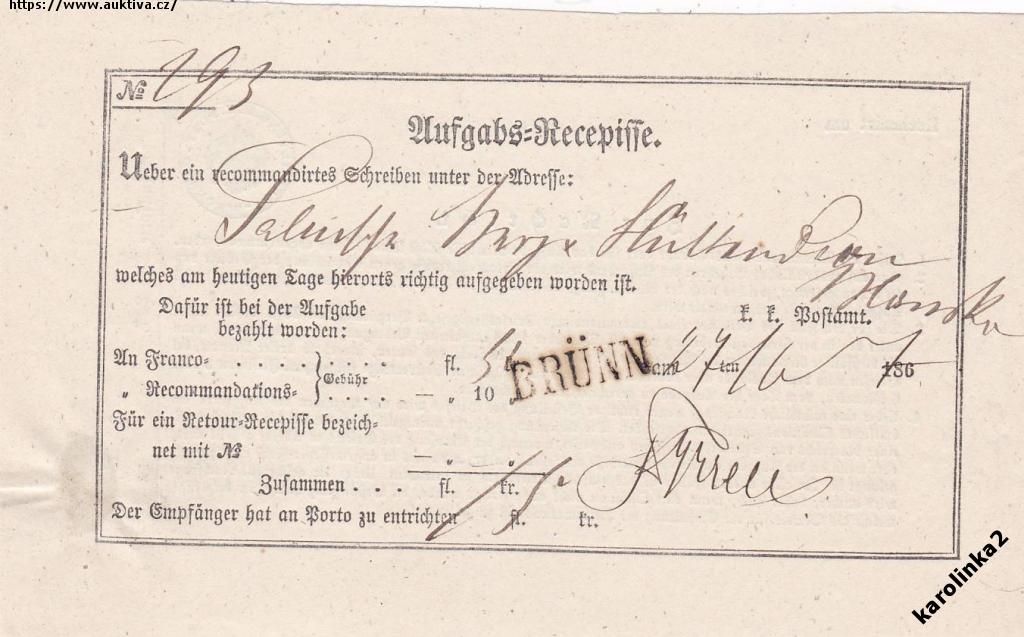 https://www.auktiva.cz/
№ 293
Aufgabs-Recepisse.
Ueber ein recommandirtes Schreiben unter der Adresse:
welches am heutigen Tage hierorts richtig aufgegeben worden ist.
Dafür ist bei der Aufgabe
bezahlt worden:
k. k. Postamt.
An Franco- . . . . . Gebühr . . . . fl. 5 kr.
BRÜNN am 27 ten 186
„ Recommandations- . . . . — „ 10 „
Für ein Retour-Recepisse bezeich-
net mit № — „ „
Zusammen . . . fl. 15 kr.
Der Empfänger hat an Porto zu entrichten fl. kr.
karolinka2